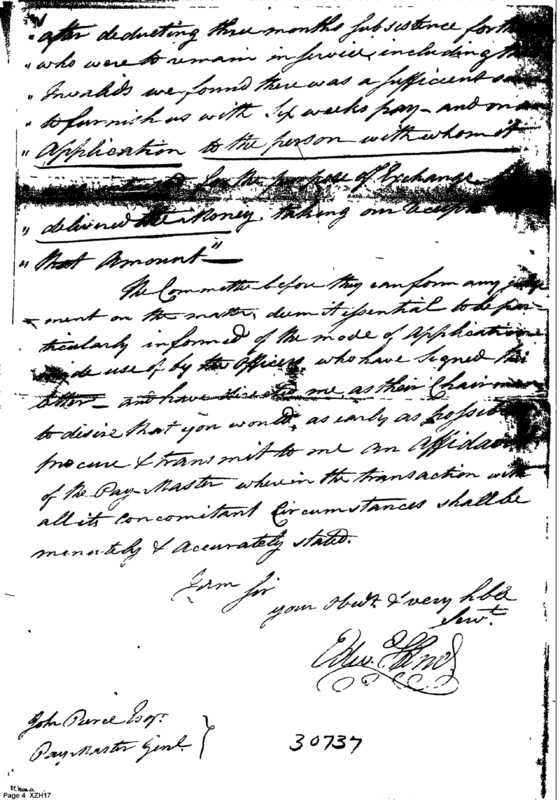 " after deducting three months subsistence for
" who were to remain in service, including
" Invalids we found there was a sufficient
" to furnish us with Six weeks pay – and on
" Application to the person with whom it
for the purpose of Exchange
" delivered the Money, taking our
" that Amount – "
The Committee before they can form any
ment on the matter, deem it essential to be par-
ticularly informed of the mode of Application
use of by the Officers, who have signed
letter – and have directed me, as their Chairman
to desire that you would, as early as possible
procure & transmit to me an Affidavit
of the Pay-Master wherein the transaction with
all its concomitant Circumstances shall be
minutely & accurately stated.
I am Sir
your Obdt. & very hble
Servt.
Edw.
John Pierce Esqr.
Pay-Master Genl.
30737
Page 4 XZH17